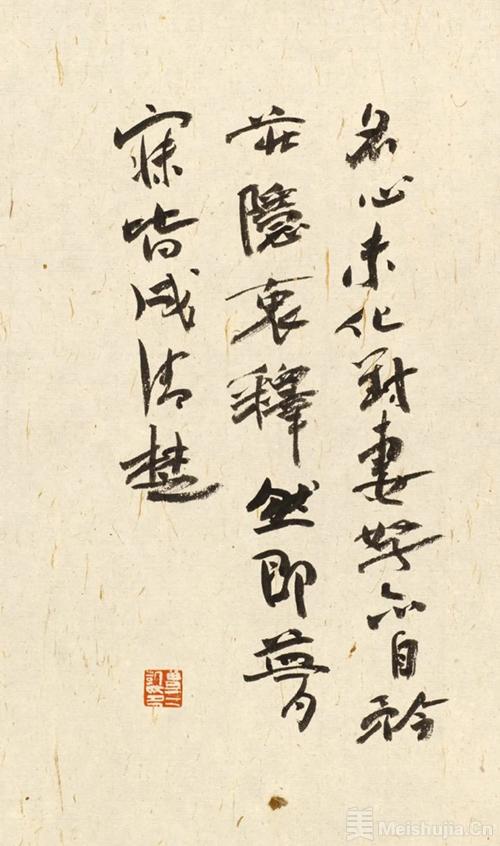 名心未化對妻孥亦自矜
莊隱衷釋然即夢
寐皆成清楚
美 Meishujia.Cn